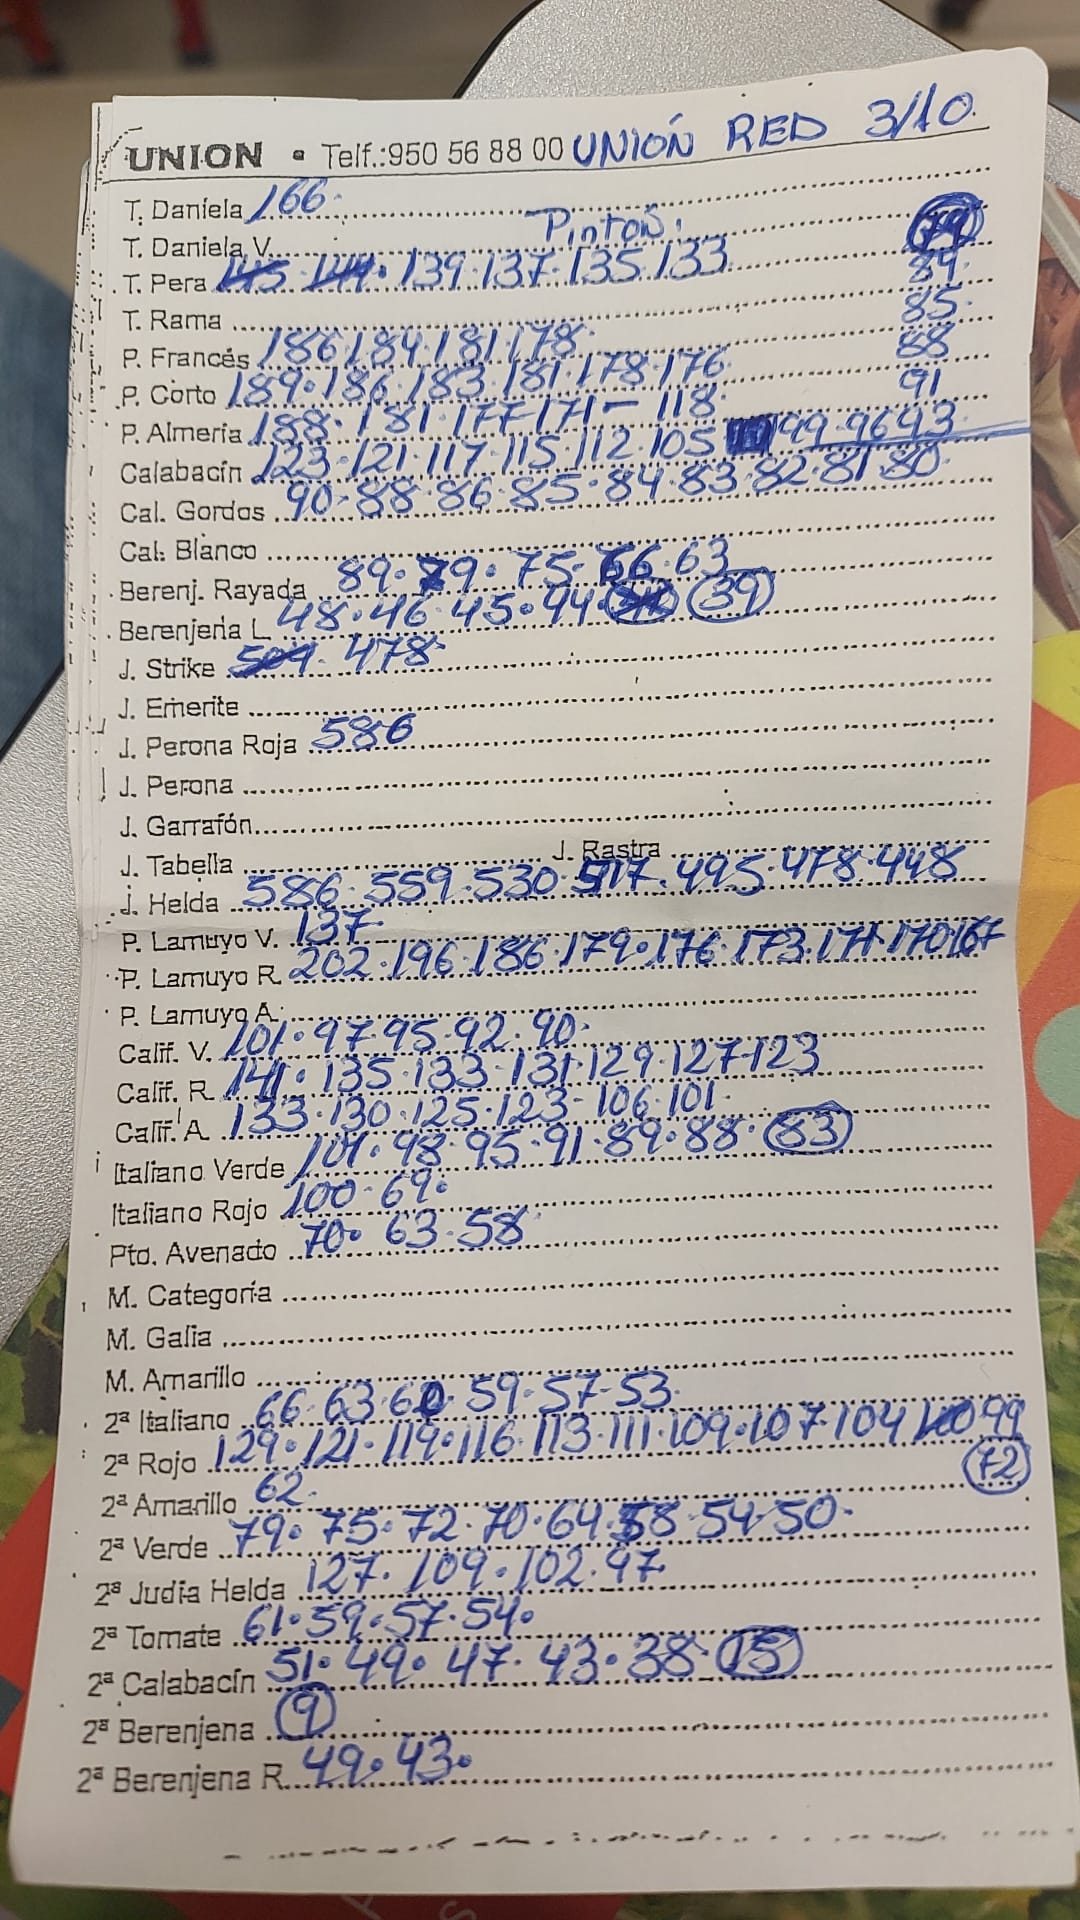 UNION • Telf.:950 56 88 00 UNIÓN RED 3/10.
T. Daniela 166.
T. Daniela V. Pintón.
T. Pera 145 144 • 139 • 137 • 135 133 84.
T. Rama 85.
P. Francés 186 184 • 181 178. 88
P. Corto 189 • 186 • 183 • 181 • 178 • 176 91
P. Almería 188 • 181 • 177 171 - 118. 99 • 96 93
Calabacín 123 • 121 • 117 • 115 • 112 • 105
Cal. Gordos 90 • 88 • 86 • 85 • 84 • 83 • 82 • 81 80.
Cal. Blanco
Berenj. Rayada 89 • 79 • 75 • 66 • 63
Berenjena L. 48 • 46 • 45 • 44 • 39
J. Strike 509 • 478
J. Emerite
J. Perona Roja 586
J. Perona
J. Garrafón
J. Tabella J. Rastra
J. Helda 586 • 559 • 530 • 517 • 495 • 478 • 448
P. Lamuyo V. 137
P. Lamuyo R. 202 • 196 • 186 • 179 • 176 • 173 • 171 • 170 167
P. Lamuyo A.
Calif. V. 101 • 97 • 95 • 92 • 90.
Calif. R. 141 • 135 • 133 • 131 • 129 • 127 • 123
Calif. A. 133 • 130 • 125 • 123 - 106 • 101.
Italiano Verde 101 • 98 • 95 • 91 • 89 • 88 • 83
Italiano Rojo 100 • 69.
Pto. Avenado 70 • 63 • 58
M. Categoría
M. Galia
M. Amarillo
2ª Italiano 66 • 63 • 60 • 59 • 57 • 53.
2ª Rojo 129 • 121 • 119 • 116 • 113 • 111 • 109 • 107 104 100 99
2ª Amarillo 62. 72
2ª Verde 79 • 75 • 72 • 70 • 64 • 58 • 54 • 50.
2ª Judía Helda 127 • 109 • 102 • 97
2ª Tomate 61 • 59 • 57 • 54.
2ª Calabacín 51 • 49 • 47 • 43 • 38 • 15
2ª Berenjena 9
2ª Berenjena R. 49 • 43.